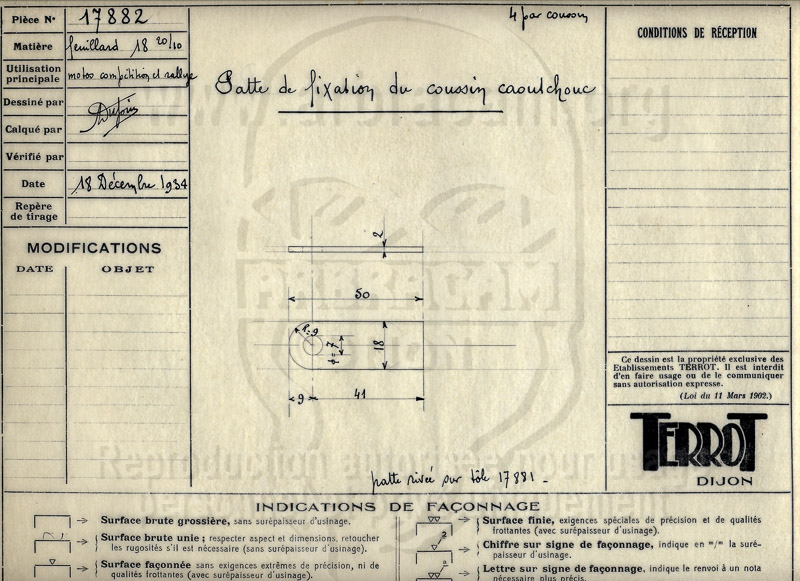 Pièce No 17882
Matière feuillard 18 20/10
Utilisation principale motos compétition et rallye
Dessiné par
Calqué par
Vérifié par
Date 18 Décembre 1934
Repère de tirage
MODIFICATIONS
DATE OBJET
4 par coussin
Patte de fixation du coussin caoutchouc
2
50
R=9
φ=7
18
9
41
patte rivée sur tôle 17881 -
ARBRACAM
DIJON
Reproduction autorisée pour usage
CONDITIONS DE RÉCEPTION
Ce dessin est la propriété exclusive des
Etablissements TERROT. Il est interdit
d'en faire usage ou de le communiquer
sans autorisation expresse.
(Loi du 11 Mars 1902.)
TERROT
DIJON
INDICATIONS DE FAÇONNAGE
Surface brute grossière, sans surépaisseur d'usinage.
Surface brute unie ; respecter aspect et dimensions, retoucher
les rugosités s'il est nécessaire (sans surépaisseur d'usinage).
Surface façonnée sans exigences extrêmes de précision, ni de
qualités frottantes (avec surépaisseur d'usinage).
Surface finie, exigences spéciales de précision et de qualités
frottantes (avec surépaisseur d'usinage).
2
Chiffre sur signe de façonnage, indique en "/" la suré-
paisseur d'usinage.
a
Lettre sur signe de façonnage, indique le renvoi à un nota
nécessaire plus précis.